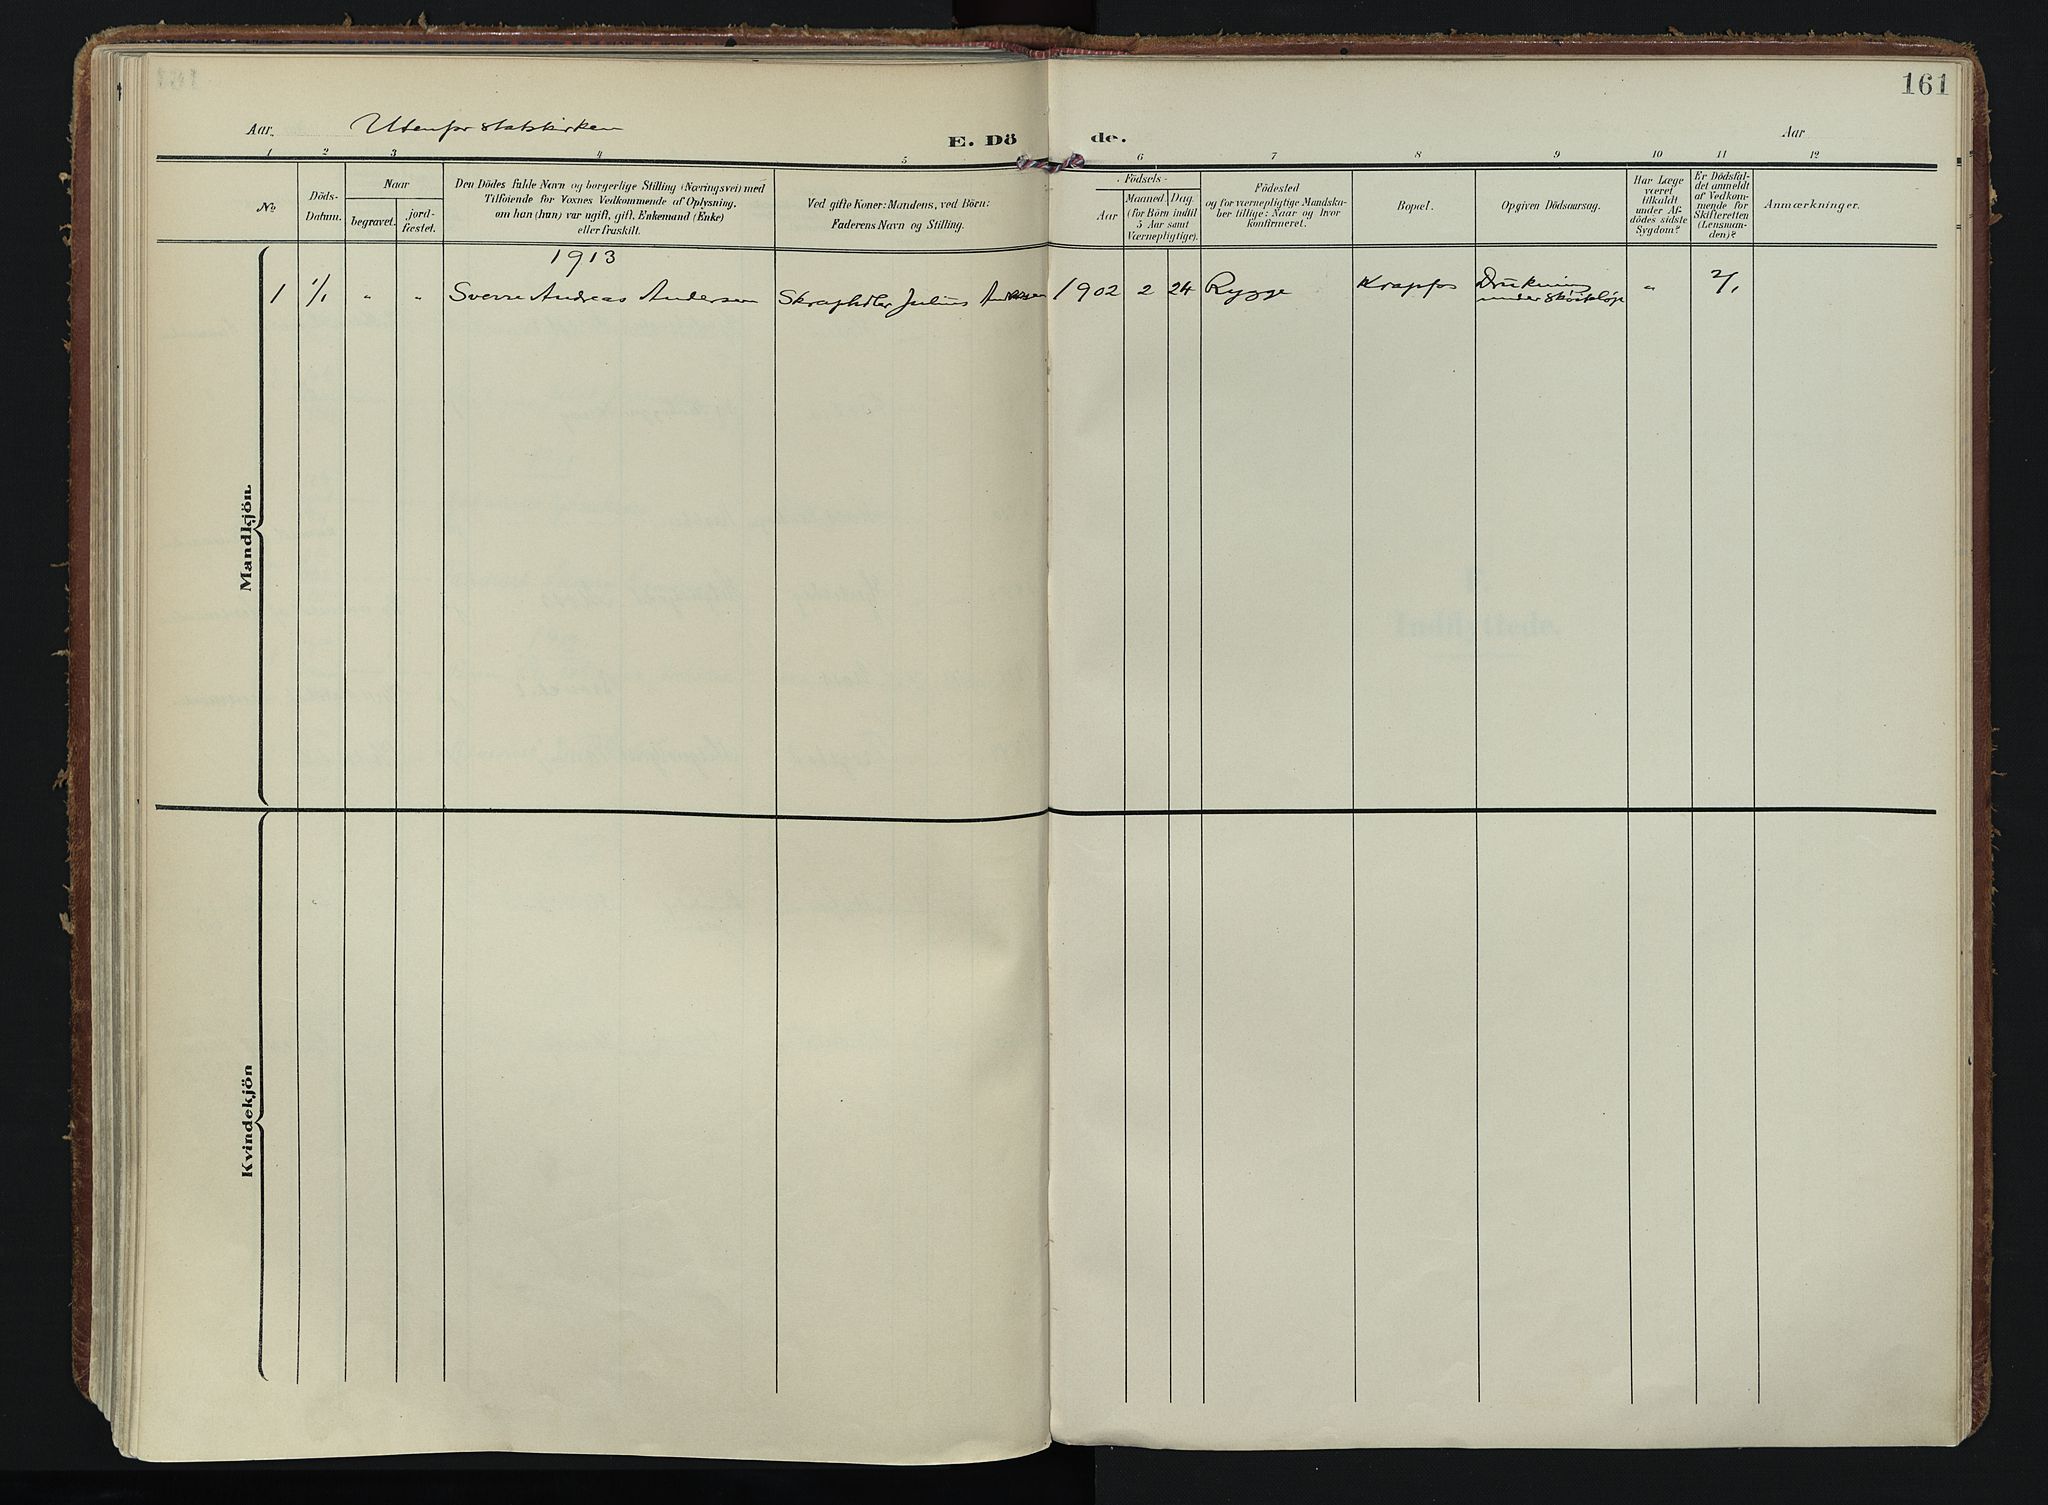 161
Aar. Utenfor statskirken E. Dö de. Aar
1 2 3 4 5 6 7 8 9 10 11 12
No
Döds-
Datum.
Naar
begravet.
jord-
fæstet.
Den Dödes fulde Navn og borgerlige Stilling (Næringsvei) med
Tilföiende for Voxnes Vedkommende af Oplysning,
om han (hun) var ugift, gift, Enkemand (Enke)
eller fraskilt.
Ved gifte Koner: Mandens, ved Börn:
Faderens Navn og Stilling.
Födsels-
Aar
Maaned. Dag.
(for Börn indtil
5 Aar samt
Værnepligtige).
Födested
og for værnepligtige Mandska-
ber tillige: Naar og hvor
konfirmeret.
Bopæl.
Opgiven Dödsaarsag.
Har Læge
været
tilkaldt
under Af-
dödes sidste
Sygdom?
Er Dödsfal-
det anmeldt
af Vedkom-
mende for
Skifteretten
(Lensman-
den)?
Anmærkninger.
Mandkjön.
1913
1 1/1 " " Sverre Andreas Andersen Julius Andersen 1902 2 24 Rygge Krapfos Drukning " 2/1
under skøiteløp
Kvindekjön